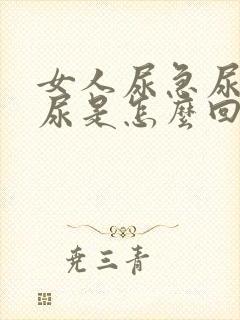 女人尿急尿
尿是怎麼回
尭三青